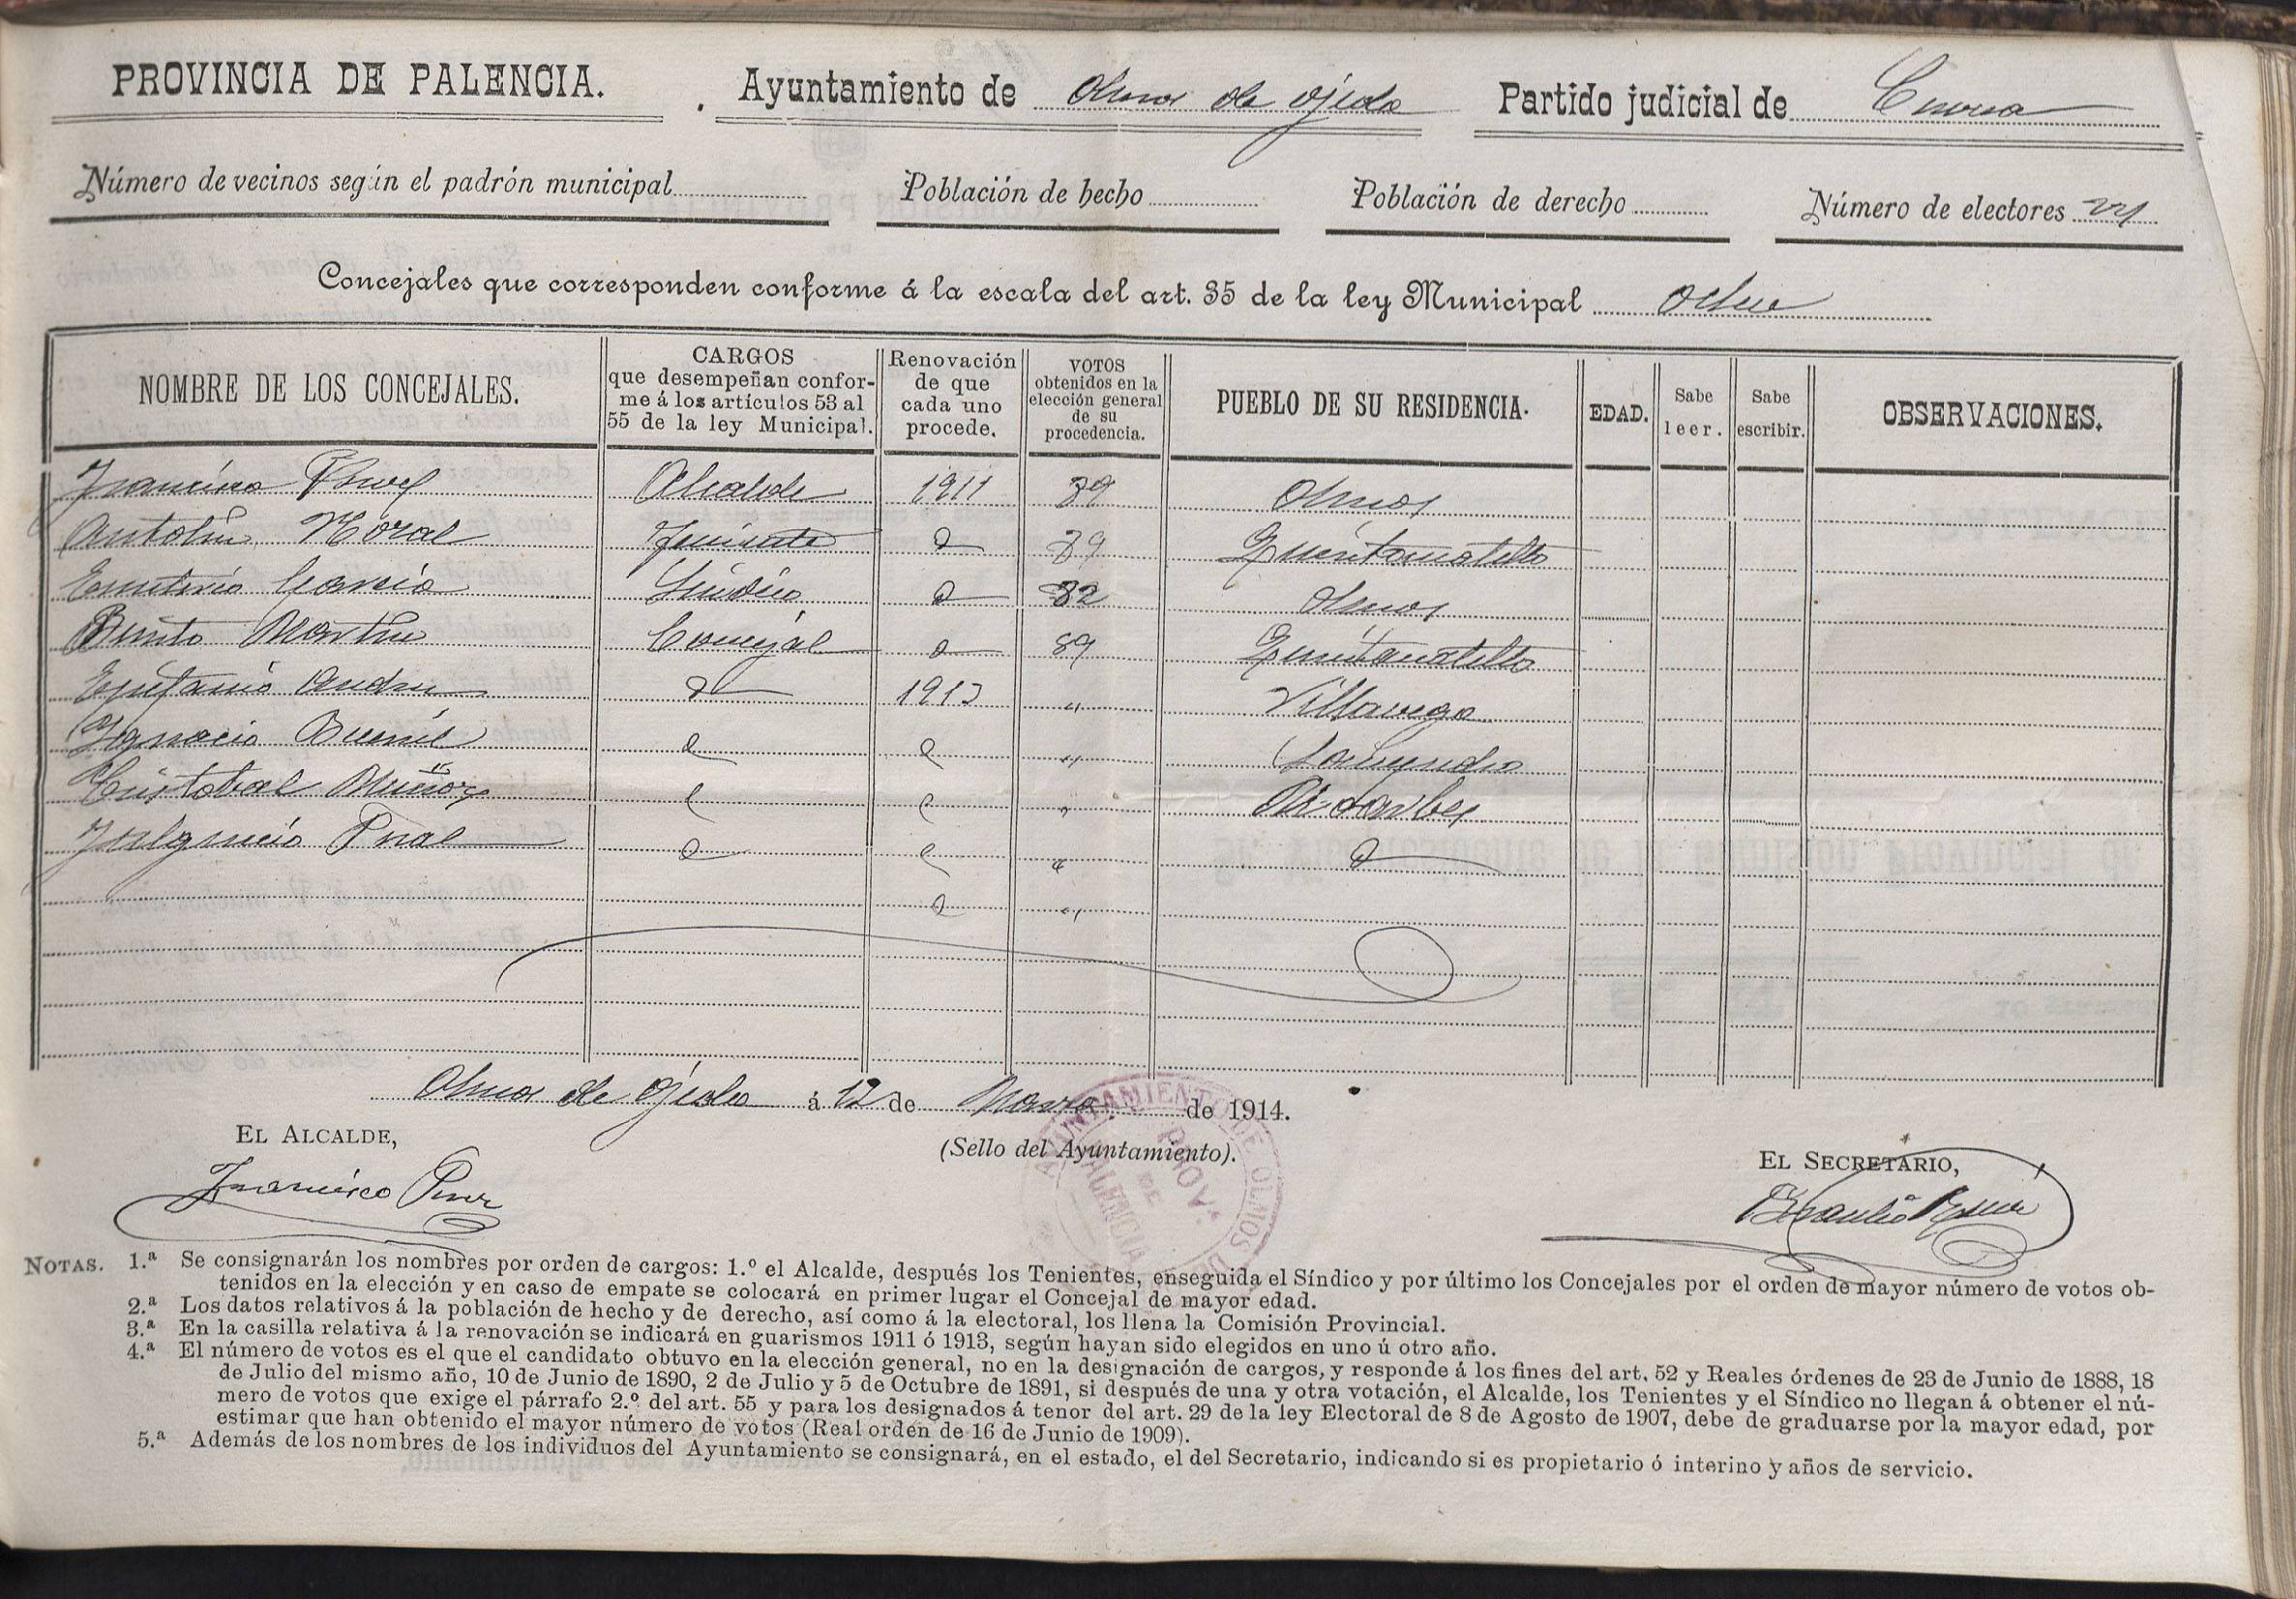 PROVINCIA DE PALENCIA. Ayuntamiento de Olmos de Ojeda Partido judicial de Cervera
Número de vecinos según el padrón municipal Población de hecho Población de derecho Número de electores
Concejales que corresponden conforme á la escala del art. 35 de la ley Municipal Ocho
NOMBRE DE LOS CONCEJALES. CARGOS que desempeñan conforme á los artículos 53 al 55 de la ley Municipal. Renovación de que cada uno procede. VOTOS obtenidos en la elección general de su procedencia. PUEBLO DE SU RESIDENCIA. EDAD. Sabe leer. Sabe escribir. OBSERVACIONES.
Francisco Alcalde 1911 Olmos
Antolin Moral Teniente Quintanatello
Emeterio Garcia Sindico Olmos
Benito Martin Concejal 89 Quintanatello
Epifanio Andres 1913 " Villavega
Ignacio "
Cristobal Muñoz "
Fulgencio "
"
Olmos de Ojeda á 12 de Marzo de 1914.
EL ALCALDE,
(Sello del Ayuntamiento).
AYUNTAMIENTO DE OLMOS DE
PROV.ª DE PALENCIA
EL SECRETARIO,
Francisco
Braulio
NOTAS. 1.ª Se consignarán los nombres por orden de cargos: 1.º el Alcalde, después los Tenientes, enseguida el Síndico y por último los Concejales por el orden de mayor número de votos ob-
tenidos en la elección y en caso de empate se colocará en primer lugar el Concejal de mayor edad.
2.ª Los datos relativos á la población de hecho y de derecho, así como á la electoral, los llena la Comisión Provincial.
3.ª En la casilla relativa á la renovación se indicará en guarismos 1911 ó 1913, según hayan sido elegidos en uno ú otro año.
4.ª El número de votos es el que el candidato obtuvo en la elección general, no en la designación de cargos, y responde á los fines del art. 52 y Reales órdenes de 23 de Junio de 1888, 18
de Julio del mismo año, 10 de Junio de 1890, 2 de Julio y 5 de Octubre de 1891, si después de una y otra votación, el Alcalde, los Tenientes y el Síndico no llegan á obtener el nú-
mero de votos que exige el párrafo 2.º del art. 55 y para los designados á tenor del art. 29 de la ley Electoral de 8 de Agosto de 1907, debe de graduarse por la mayor edad, por
estimar que han obtenido el mayor número de votos (Real orden de 16 de Junio de 1909).
5.ª Además de los nombres de los individuos del Ayuntamiento se consignará, en el estado, el del Secretario, indicando si es propietario ó interino y años de servicio.